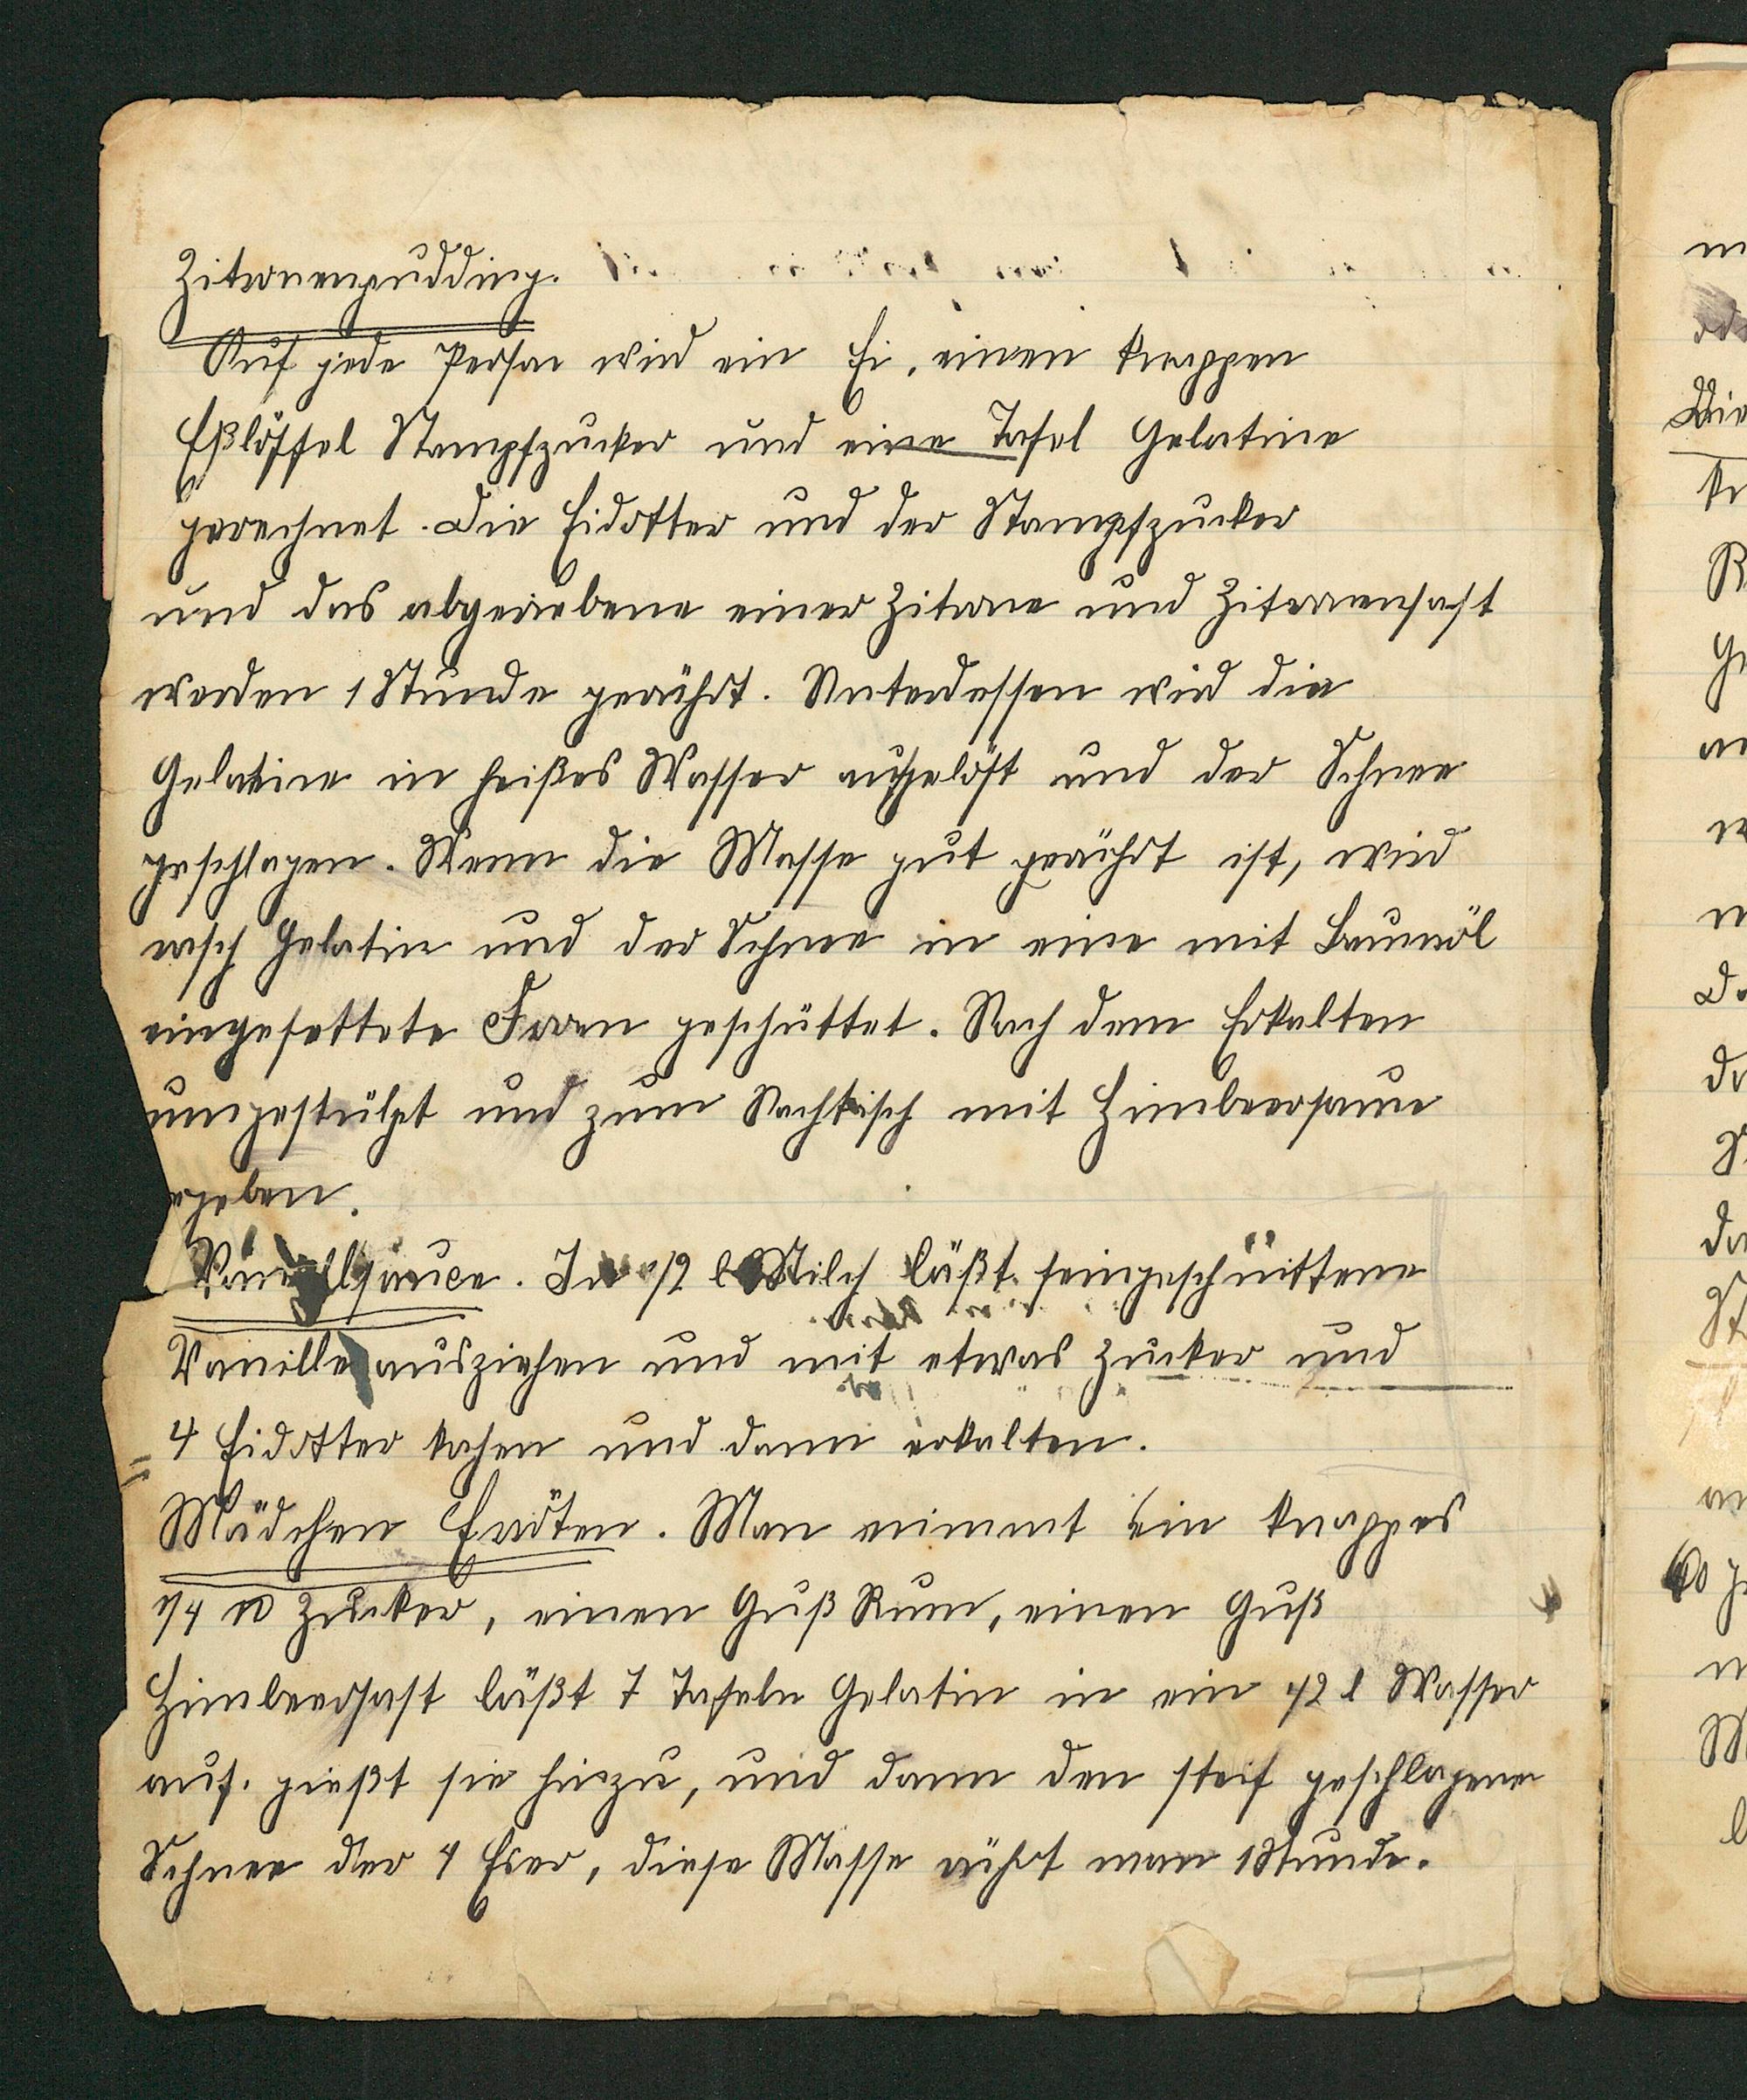 Zitronenpudding.
Auf jede Person wird ein Ei, einen knappen
Eßlöffel Stampfzucker und eine Tafel Gelatine
gerechnet. Die Eidotter und der Stampfzucker
und das abgeriebene einer Zitrone und Zitronensaft
werden 1 Stunde gerührt. Unterdessen wird die
Gelatine in heißes Wasser aufgelöst und der Schnee
geschlagen. Wenn die Masse gut gerührt ist, wird
rasch Gelatin und der Schnee in eine mit Baumöl
eingefettete Form geschüttet. Nach dem Erkalten
umgestülpt und zum Nachtisch mit Himbeersauce
gegeben.
Vanillsauce. In 1/2 l Milch läßt feingeschnittene
Vanille ausziehen und mit etwas Zucker und
4 Eidotter kochen und dann erkalten.
Mädchen Erröten. Man nimmt ein knappes
1/4 ℔ Zucker, einen Guß Rum, einen Guß
Himbeersaft läßt 7 Tafeln Gelatin in ein 1/2 l Wasser
auf. gießt sie hinzu, und dann den steif geschlagenen
Schnee der 4 Eier, diese Masse rührt man 1 Stunde.